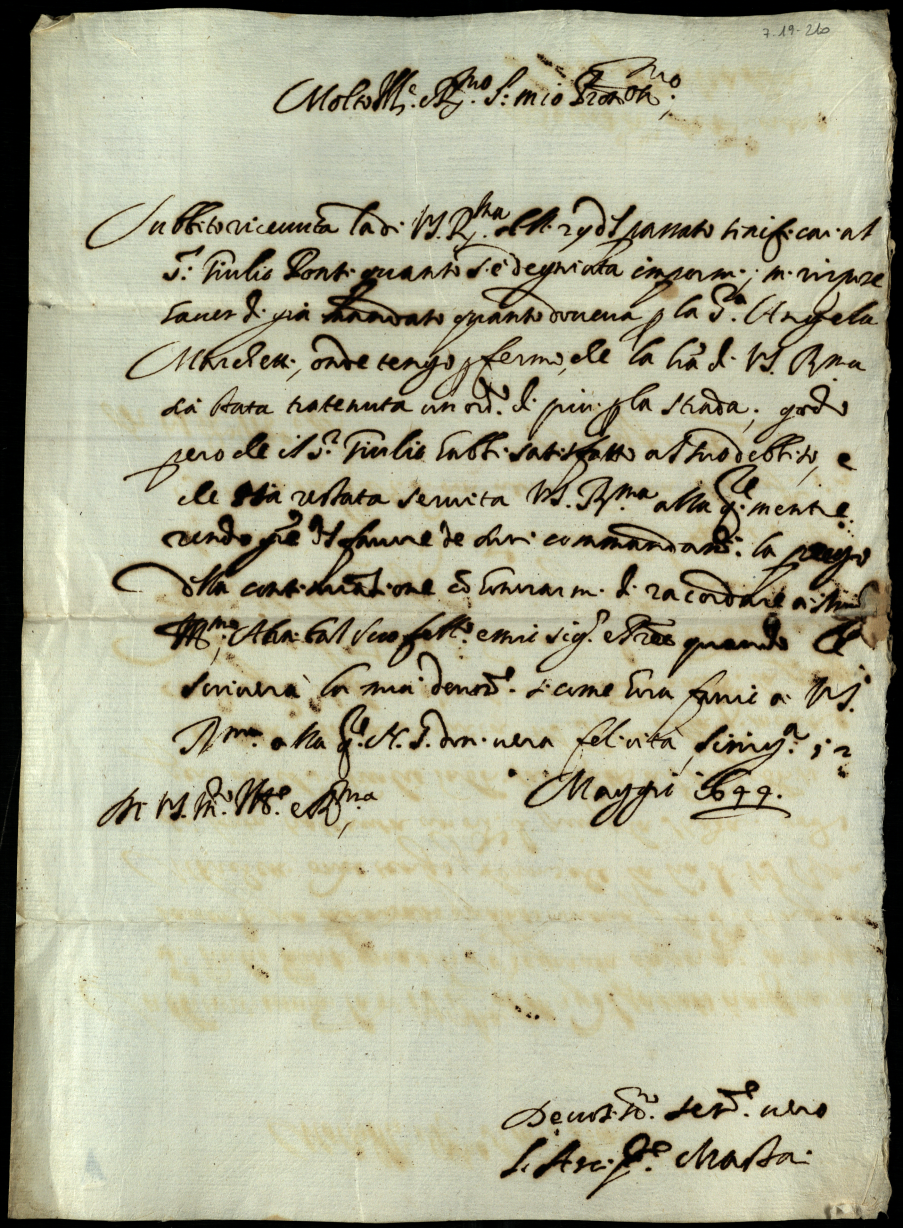 7-19-210
Molto Ill.e e R.mo S.r mio P.ron
Subbito riceuuta la di VS. R.ma delli 29 del passato tinificai al
S.r Giulio Ponti quanto s'è degniata impormi; mi rispose
hauer di già mandato quanto doueua p la S.ra Angela
Marchetti, onde tengo p fermo, che la l.ra di VS. R.ma
sia stata tratenuta un ord.o di più p la strada; godo
pero che il S.r Giulio habbi satisfatto al suo debbito, e
che sia restata seruita VS. R.ma alla q.le mentre
rendo gre del fauore de suoi commandam.ti la prego
della continuatione con honorarmi di racordare a
Ill.mo Abba tal suo fratello e mio sig.r e Prone quando
scriuerà la mia deuot.e si come hora faccio a VS.
R.ma alla q.le N. S. doni uera felicità, 12
Maggio 1699.
Di VS. M.to Ill.e e R.ma
Deuotis.mo Ser.re uero